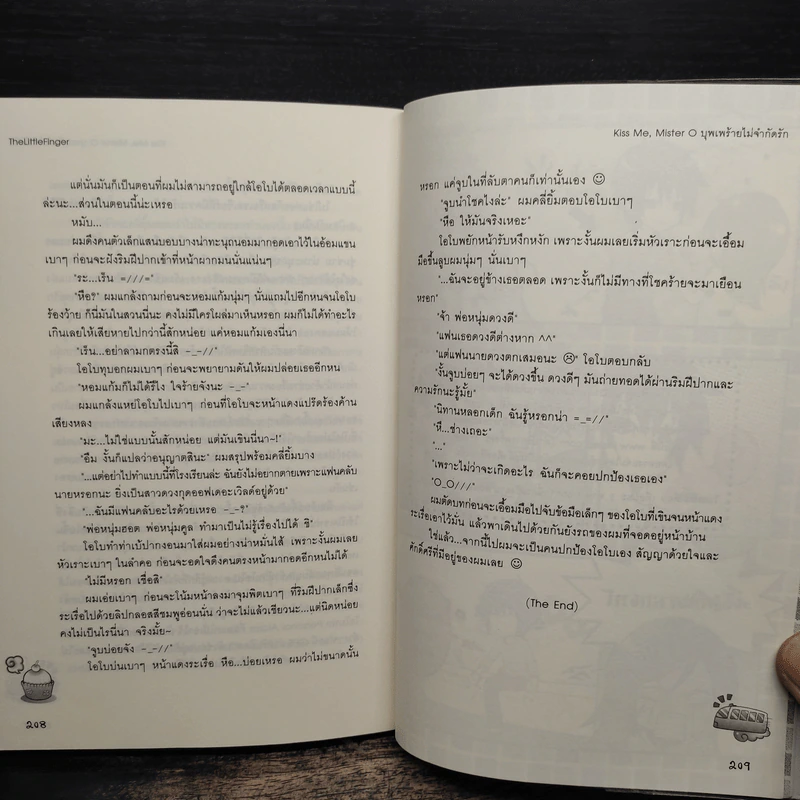 TheLittleFinger
แต่นั่นมันก็เป็นตอนที่ผมไม่สามารถอยู่ใกล้โอโบได้ตลอดเวลาแบบนี้
ล่ะนะ...ส่วนในตอนนี้น่ะเหรอ
หมับ...
ผมดึงคนตัวเล็กแสนบอบบางน่าทะนุถนอมมากอดเอาไว้ในอ้อมแขน
เบาๆ ก่อนจะฝังริมฝีปากเข้าที่หน้าผากมนนั่นแน่นๆ
"ระ...เร็น =///="
"หือ?" ผมแกล้งถามก่อนจะหอมแก้มนุ่มๆ นั่นแถมไปอีกหนจนโอโบ
ร้องว้าย ก็นี่มันในสวนนี่นะ คงไม่มีใครโผล่มาเห็นหรอก ผมก็ไม่ได้ทำอะไร
เกินเลยให้เสียหายไปกว่านี้สักหน่อย แค่หอมแก้มเองนี่นา
"เร็น...อย่าลามกตรงนี้สิ -_-//"
โอโบทุบอกผมเบาๆ ก่อนจะพยายามดันให้ผมปล่อยเธออีกหน
"หอมแก้มก็ไม่ได้รึไง ใจร้ายจังนะ -_-"
ผมแกล้งแหย่โอโบไปเบาๆ ก่อนที่โอโบจะหน้าแดงแปร๊ดร้องค้าน
เสียงหลง
"มะ...ไม่ใช่แบบนั้นสักหน่อย แต่มันเขินนี่นา~!"
"อืม งั้นก็แปลว่าอนุญาตสินะ" ผมสรุปพร้อมคลี่ยิ้มบาง
"...แต่อย่าไปทำแบบนี้ที่โรงเรียนล่ะ ฉันยังไม่อยากตายเพราะแฟนคลับ
นายหรอกนะ ยิ่งเป็นสาวดวงกุดออฟเดอะเวิลด์อยู่ด้วย"
"...ฉันมีแฟนคลับอะไรด้วยเหรอ -_-?"
"พ่อหนุ่มฮอต พ่อหนุ่มคูล ทำมาเป็นไม่รู้เรื่องไปได้ ชิ"
โอโบทำท่าเบ้ปากงอนมาใส่ผมอย่างน่าหมั่นไส้ เพราะงั้นผมเลย
หัวเราะเบาๆ ในลำคอ ก่อนจะอดใจดึงคนตรงหน้ามากอดอีกหนไม่ได้
"ไม่มีหรอก เชื่อสิ"
ผมเอ่ยเบาๆ ก่อนจะโน้มหน้าลงมาจุมพิตเบาๆ ที่ริมฝีปากเล็กซึ่ง
ระเรื่อไปด้วยลิปกลอสสีชมพูอ่อนนั่น ว่าจะไม่แล้วเชียวนะ...แต่นิดหน่อย
คงไม่เป็นไรนี่นา จริงมั้ย~
"จูบบ่อยจัง -_-//"
โอโบบ่นเบาๆ หน้าแดงระเรื่อ หือ...บ่อยเหรอ ผมว่าไม่ขนาดนั้น
208
Kiss Me, Mister O บุพเพร้ายไม่จำกัดรัก
หรอก แค่จูบในที่ลับตาคนก็เท่านั้นเอง ☺
"จูบนำโชคไงล่ะ" ผมคลี่ยิ้มตอบโอโบเบาๆ
"หือ ให้มันจริงเหอะ"
โอโบพยักหน้ารับหงึกหงัก เพราะงั้นผมเลยเริ่มหัวเราะก่อนจะเอื้อม
มือขึ้นลูบผมนุ่มๆ นั่นเบาๆ
"...ฉันจะอยู่ข้างเธอตลอด เพราะงั้นก็ไม่มีทางที่โชคร้ายจะมาเยือน
หรอก"
"จ้า พ่อหนุ่มดวงดี"
"แฟนเธอดวงดีต่างหาก ^^"
"แต่แฟนนายดวงตกเสมอนะ ☹" โอโบตอบกลับ
"งั้นจูบบ่อยๆ จะได้ดวงขึ้น ดวงดีๆ มันถ่ายทอดได้ผ่านริมฝีปากและ
ความรักนะรู้มั้ย"
"นิทานหลอกเด็ก ฉันรู้หรอกน่า =_=//"
"หึ...ช่างเถอะ"
"..."
"เพราะไม่ว่าจะเกิดอะไร ฉันก็จะคอยปกป้องเธอเอง"
"O_O///"
ผมตัดบทก่อนจะเอื้อมมือไปจับข้อมือเล็กๆ ของโอโบที่เขินจนหน้าแดง
ระเรื่อเอาไว้มั่น แล้วพาเดินไปด้วยกันยังรถของผมที่จอดอยู่หน้าบ้าน
ใช่แล้ว...จากนี้ไปผมจะเป็นคนปกป้องโอโบเอง สัญญาด้วยใจและ
ศักดิ์ศรีที่มีอยู่ของผมเลย ☺
(The End)
209